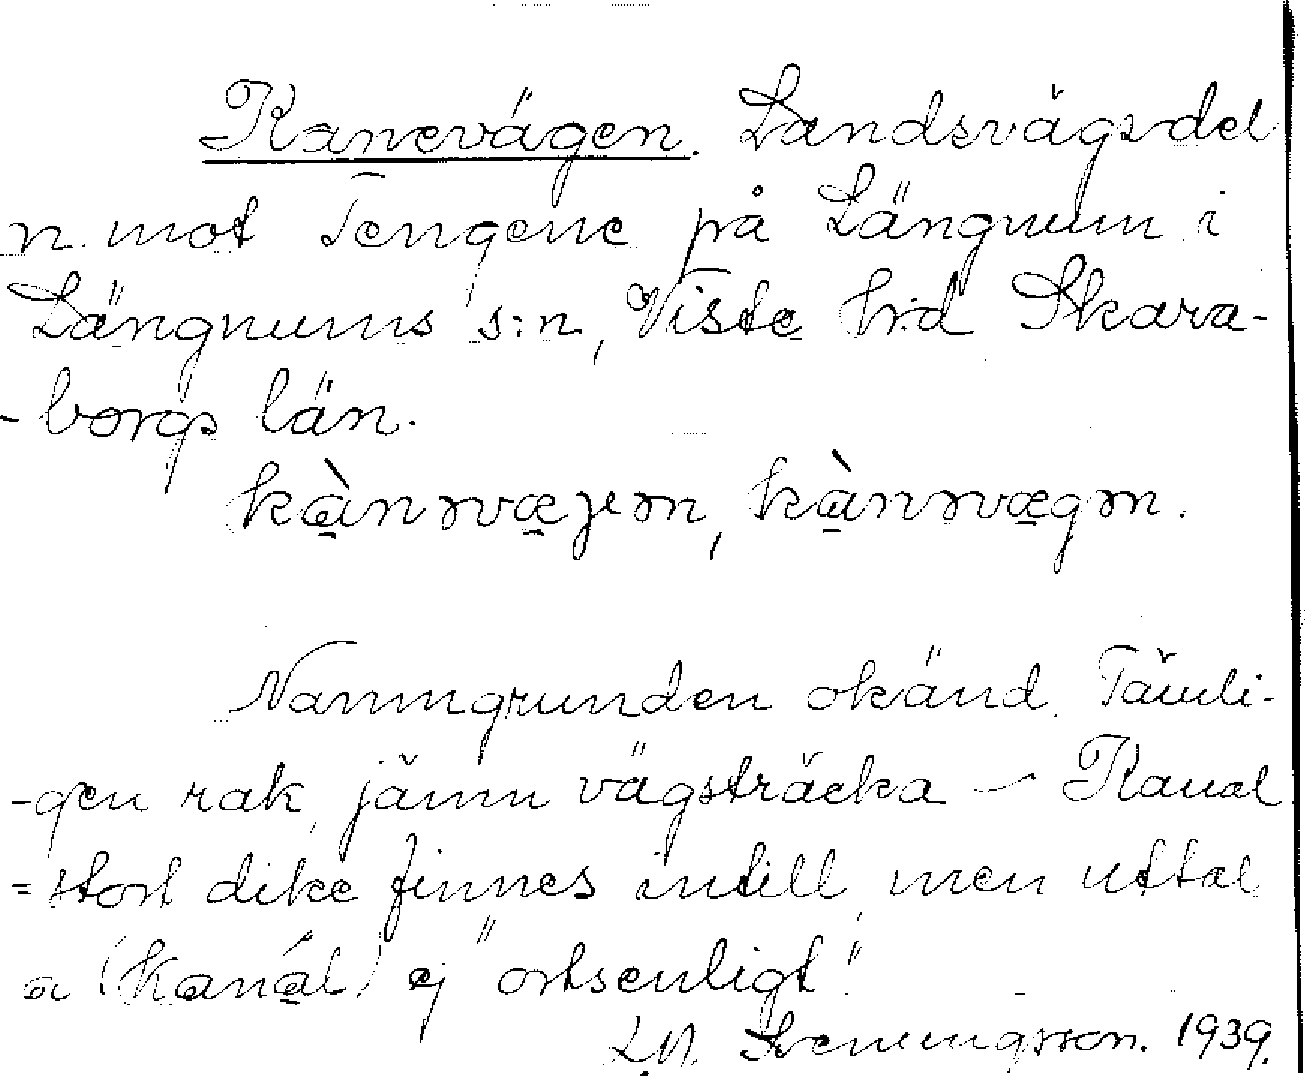 Kanevägen. Landsvägsdel
n. mot Tengene på Längnum i
Längnums s:n, Viste hrd Skara-
-borgs län.
kànnvæjen, kànnvægen.
Namngrunden okänd. Tämli-
-gen rak, jämn vägsträcka – Kanal
= stort dike finnes intill, men uttal
a (kanál) ej "ortsenligt".
1939.